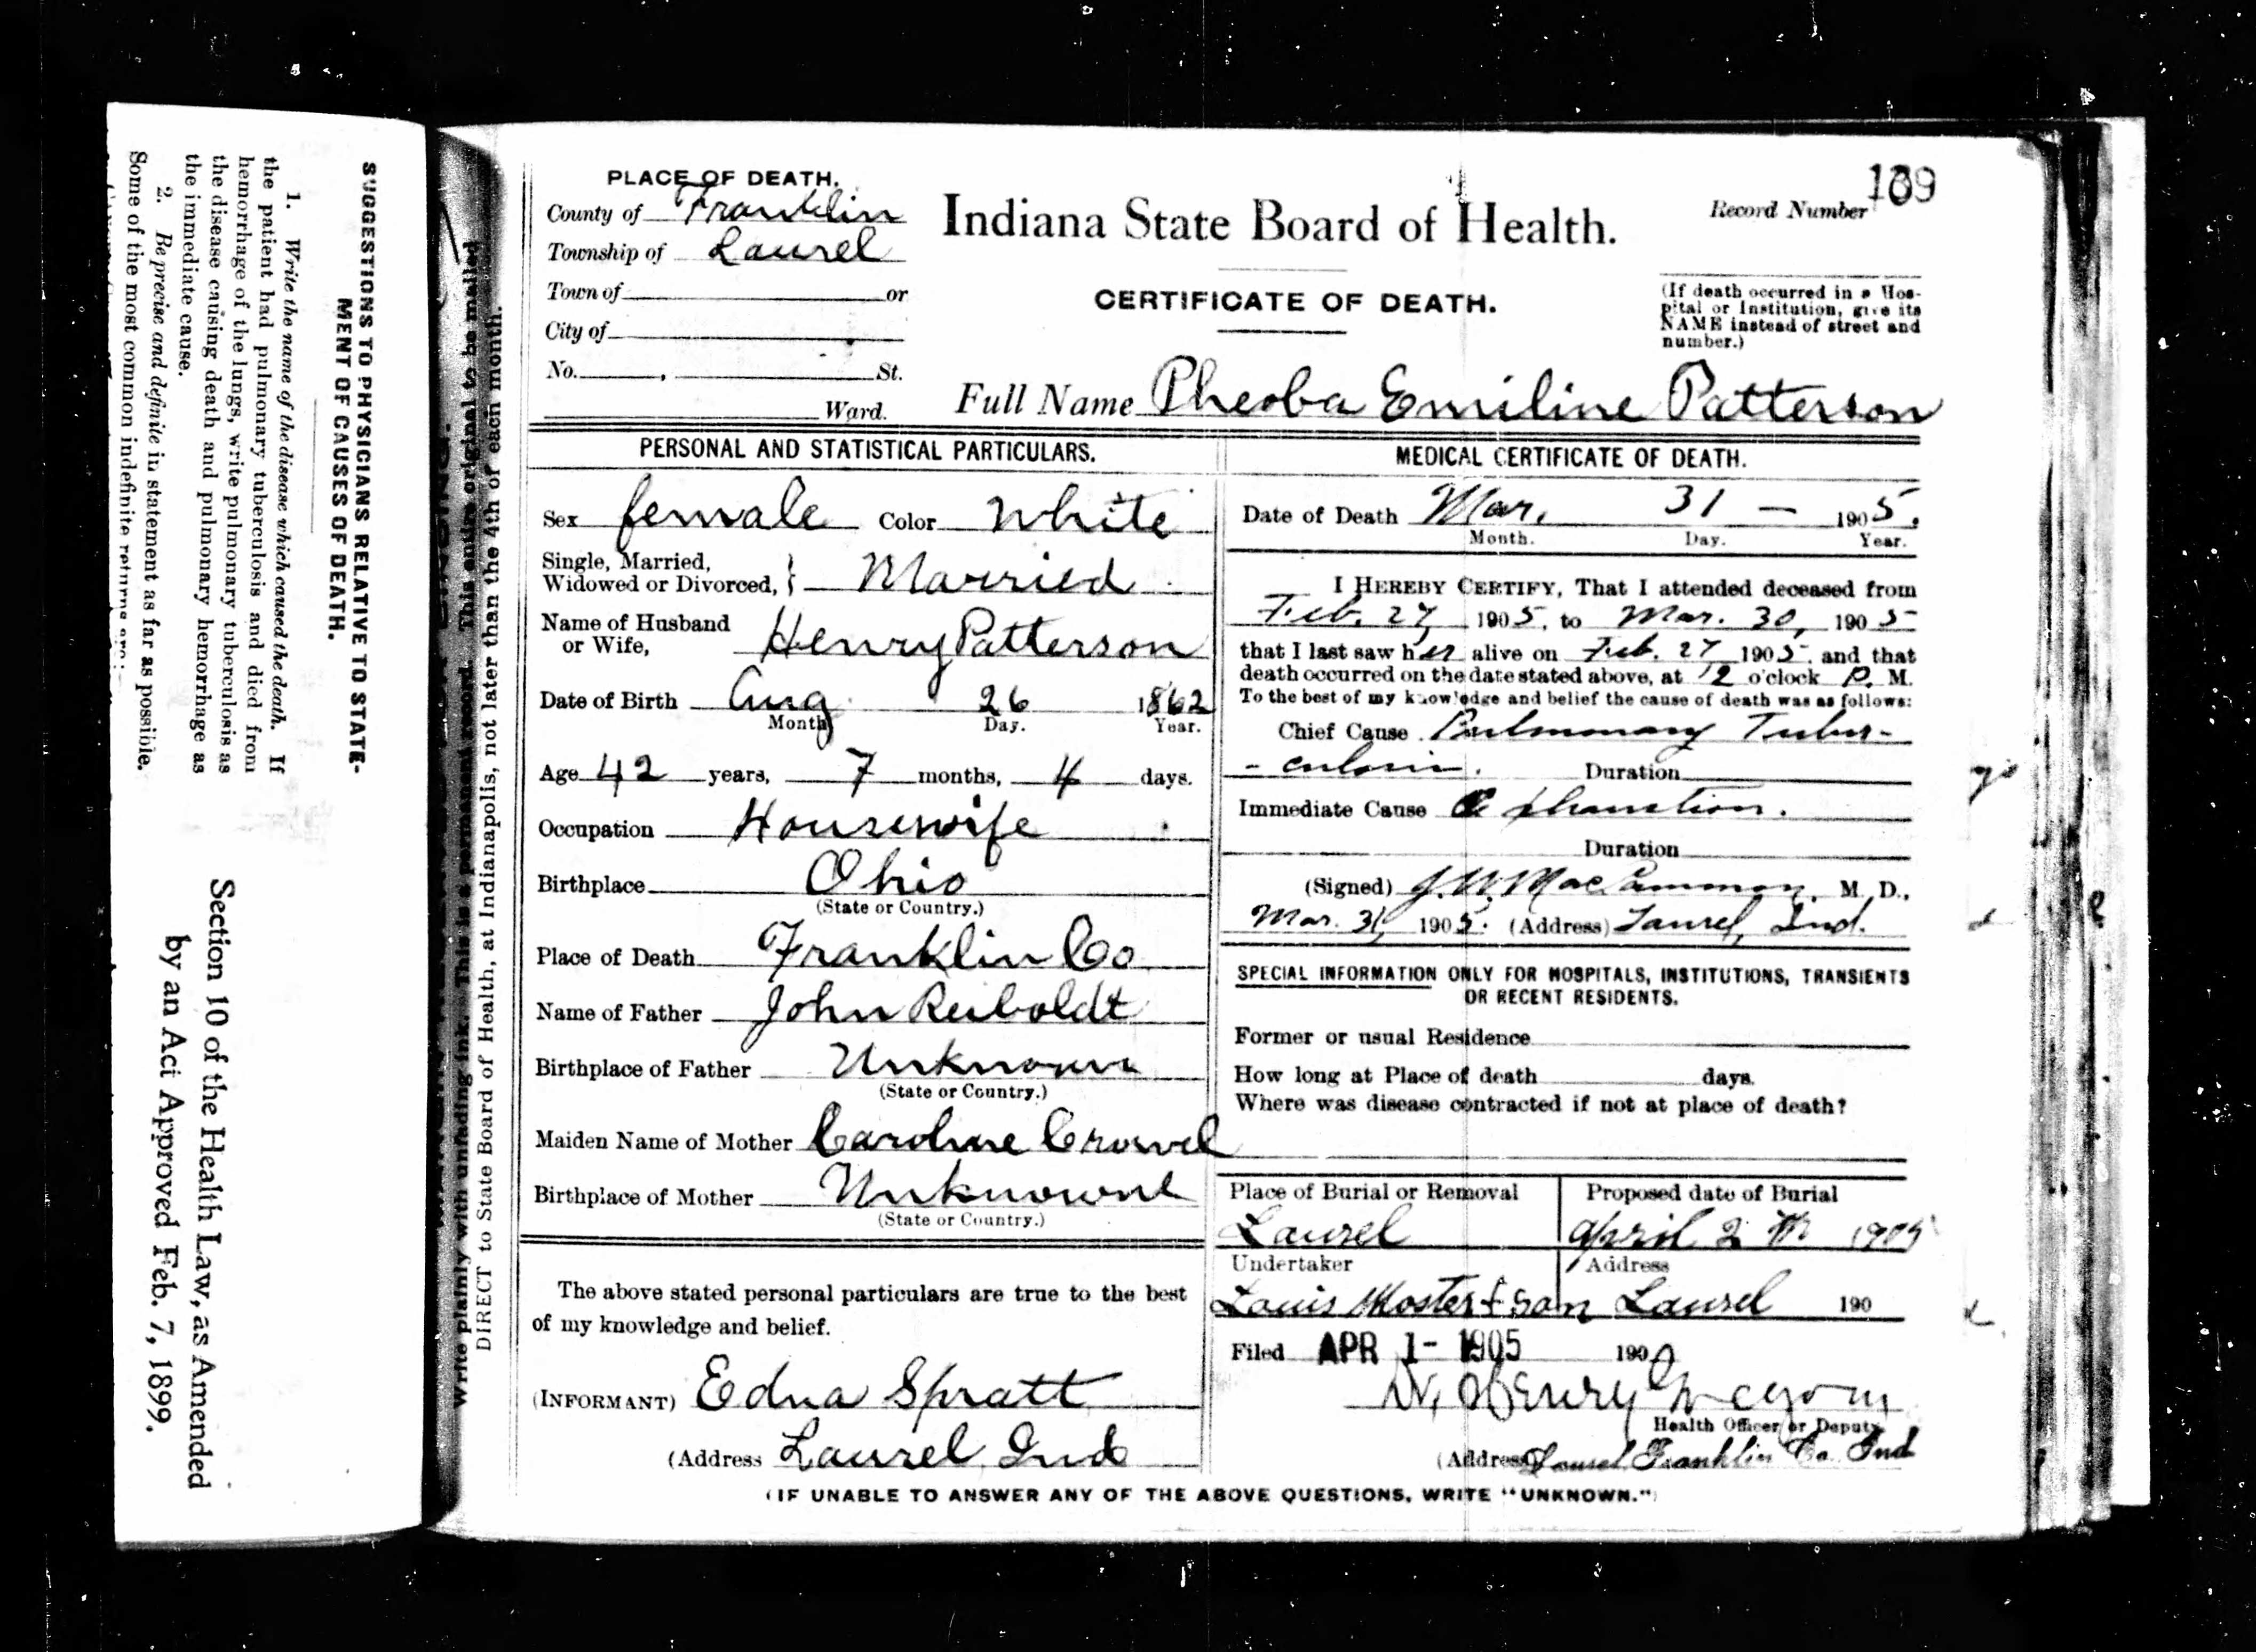 SUGGESTIONS TO PHYSICIANS RELATIVE TO STATE-
MENT OF CAUSES OF DEATH.
1. Write the name of the disease which caused the death. If
the patient had pulmonary tuberculosis and died from
hemorrhage of the lungs, write pulmonary tuberculosis as
the disease causing death and pulmonary hemorrhage as
the immediate cause.
2. Be precise and definite in statement as far as possible.
Some of the most common indefinite returns are:
Section 10 of the Health Law, as Amended
by an Act Approved Feb. 7, 1899.
Write plainly with unfading ink. This is a permanent record. This entire original to be mailed
DIRECT to State Board of Health, at Indianapolis, not later than the 4th of each month.
PLACE OF DEATH.
County of Franklin
Township of Laurel
Town of or
City of
No. , St.
Ward.
Indiana State Board of Health.
CERTIFICATE OF DEATH.
Record Number 109
(If death occurred in a Hos-
pital or Institution, give its
NAME instead of street and
number.)
Full Name Pheoba Emiline Patterson
PERSONAL AND STATISTICAL PARTICULARS.
Sex female Color White
Single, Married,
Widowed or Divorced, } Married
Name of Husband
or Wife, Henry Patterson
Date of Birth Aug 26 1862
Month Day. Year.
Age 42 years, 7 months, 4 days.
Occupation Housewife
Birthplace Ohio
(State or Country.)
Place of Death Franklin Co
Name of Father John Reiboldt
Birthplace of Father Unknown
(State or Country.)
Maiden Name of Mother Caroline Crowel
Birthplace of Mother Unknowne
(State or Country.)
The above stated personal particulars are true to the best
of my knowledge and belief.
(INFORMANT) Edna Spratt
(Address Laurel Ind
MEDICAL CERTIFICATE OF DEATH.
Date of Death Mar. 31 — 1905.
Month. Day. Year.
I HEREBY CERTIFY, That I attended deceased from
Feb. 27, 1905, to Mar. 30, 1905
that I last saw her alive on Feb. 27 1905, and that
death occurred on the date stated above, at 12 o'clock P. M.
To the best of my knowledge and belief the cause of death was as follows:
Chief Cause Pulmonary Tuber-
-culosis. Duration
Immediate Cause
Duration
(Signed) J. W. MacCammon, M. D.,
Mar. 31, 1905. (Address) Laurel, Ind.
SPECIAL INFORMATION ONLY FOR HOSPITALS, INSTITUTIONS, TRANSIENTS
OR RECENT RESIDENTS.
Former or usual Residence
How long at Place of death days.
Where was disease contracted if not at place of death?
Place of Burial or Removal Proposed date of Burial
Laurel April 2 1905
Undertaker Address
Louis & Son Laurel 190
Filed APR 1- 1905 190
Henry
Health Officer or Deputy
(Address Laurel Franklin Co. Ind
(IF UNABLE TO ANSWER ANY OF THE ABOVE QUESTIONS, WRITE "UNKNOWN.")